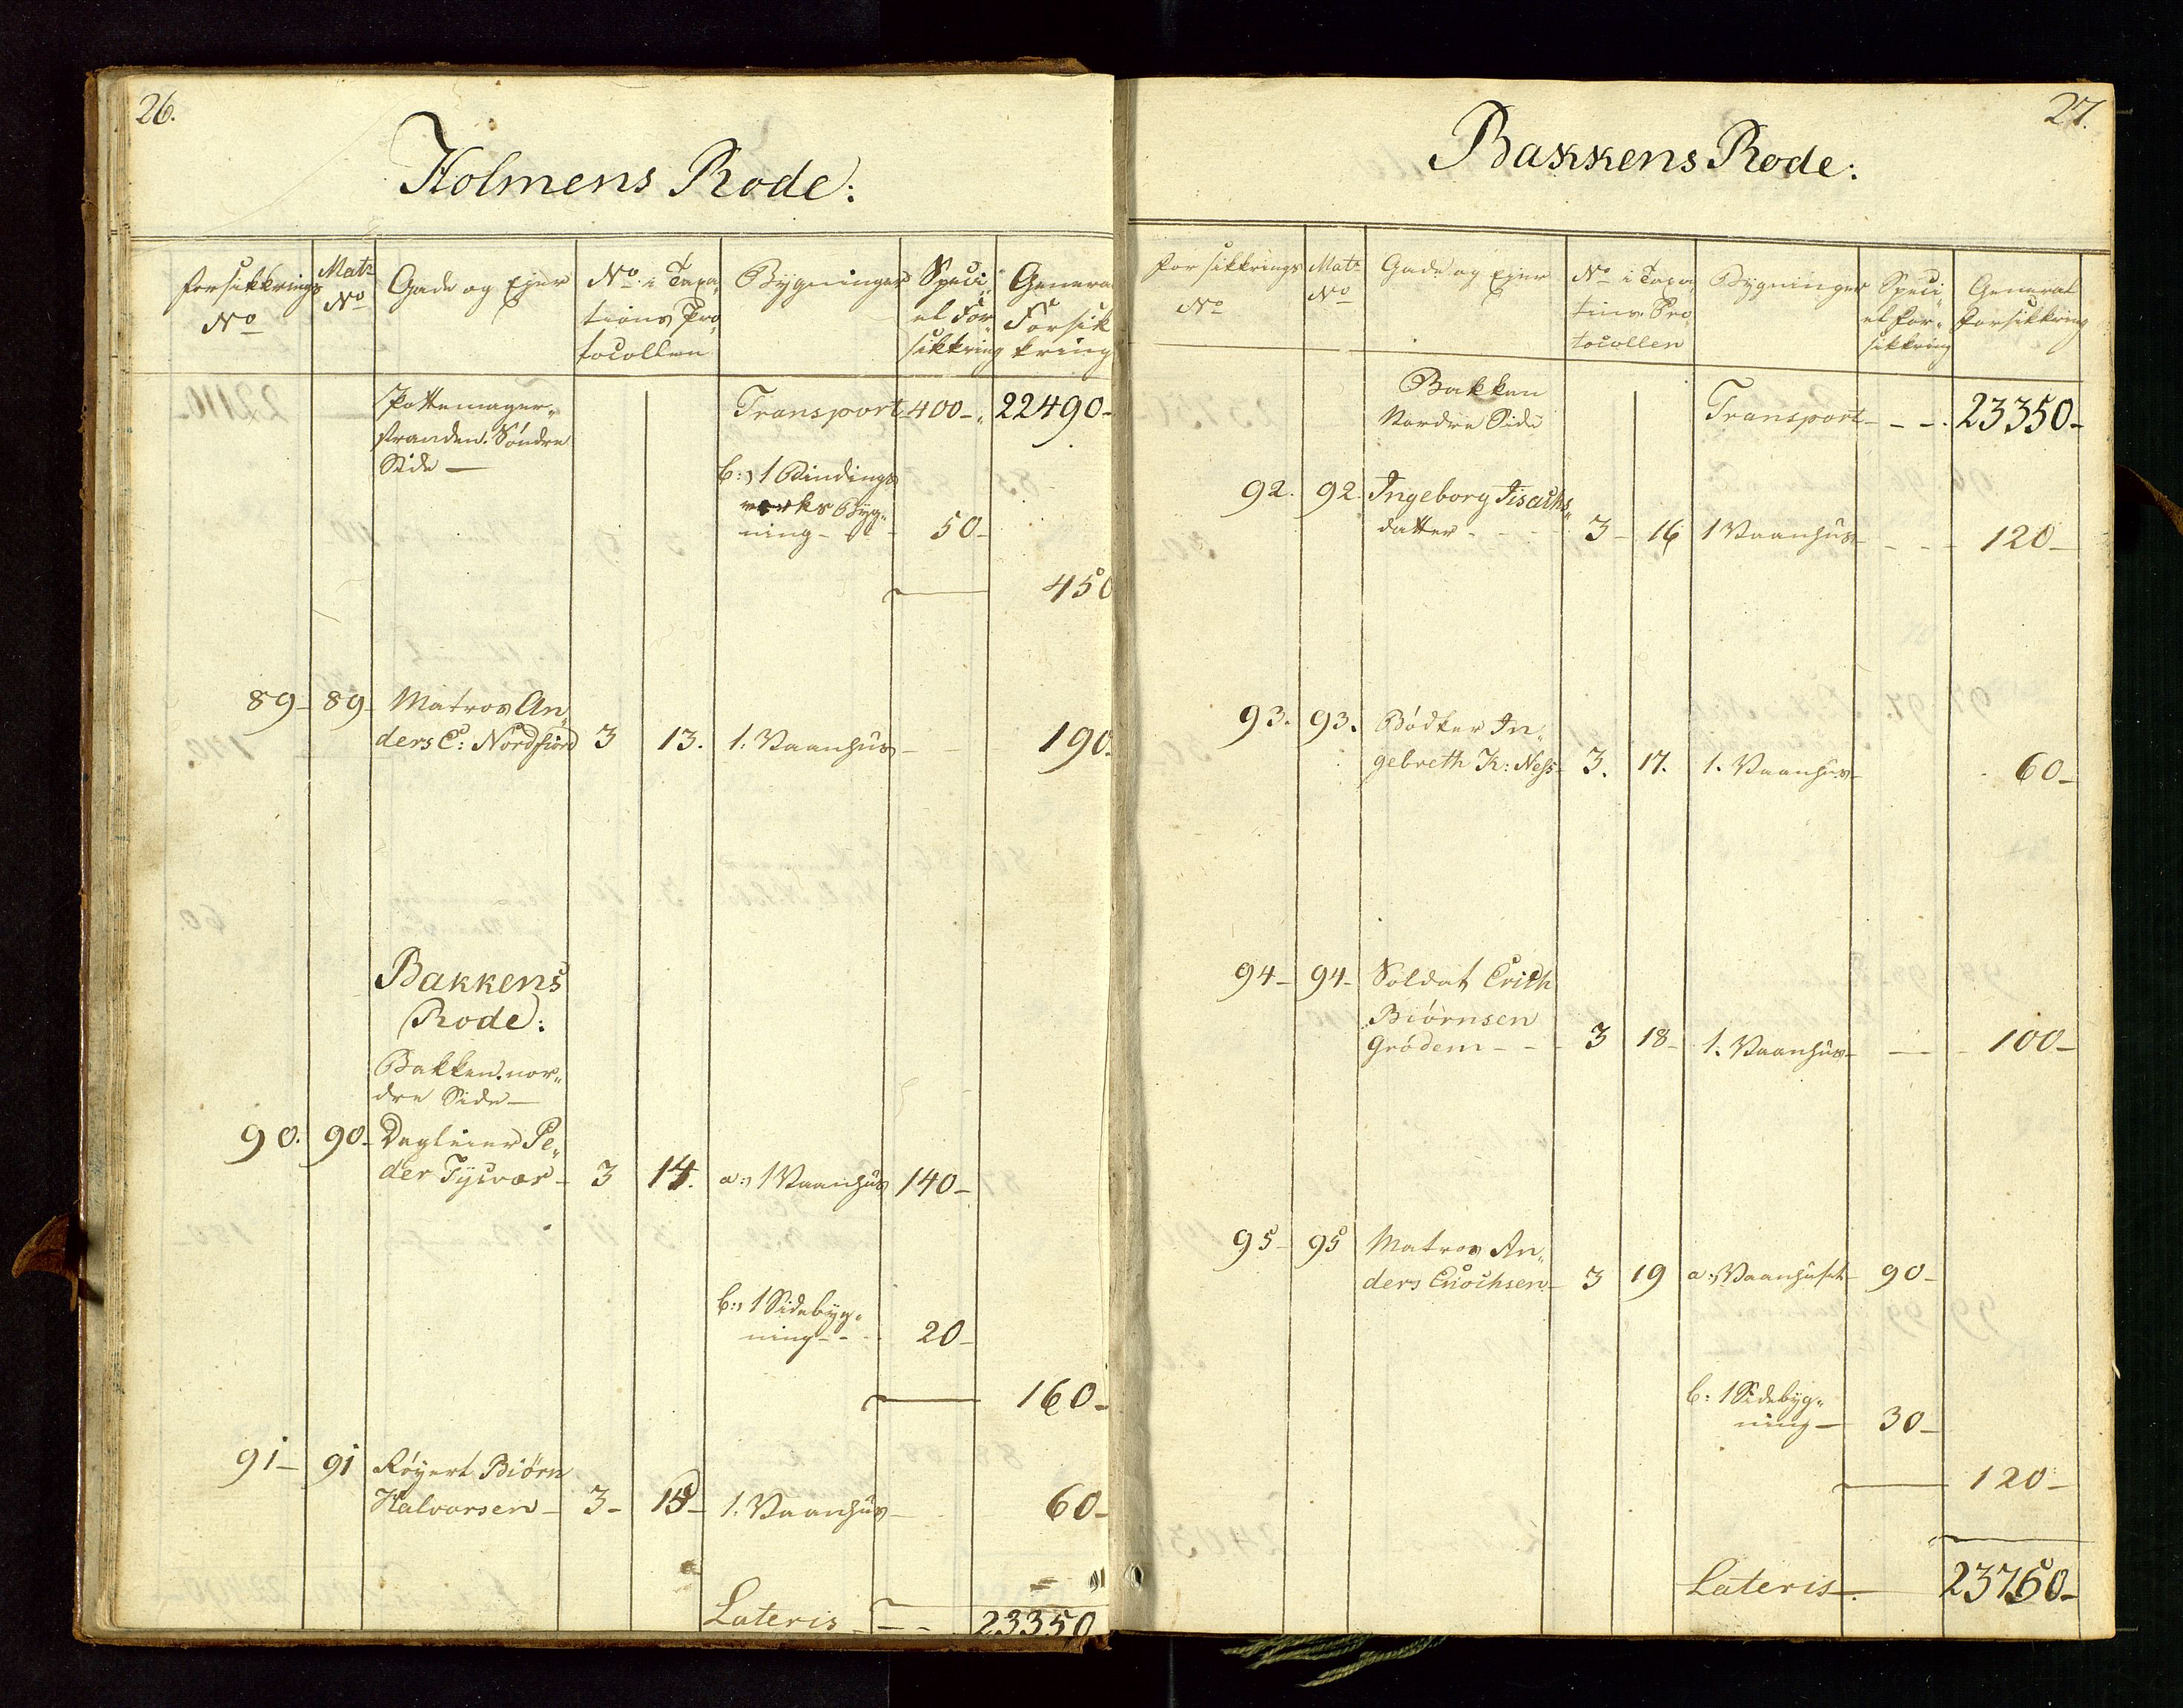 26.
Holmens Rode:
Forsikkrings No
Matr No
Gade og Ejer
No i Taxa„
tions Pro„
tocollen
Bygninger
Speci„
el For„
sikkring
General
Forsik
kring
Pottemager„
stranden. Søndre
Side —
Transport 400 — „ 22490 —
b:, 1 Bindings
verks Byg„
ning — 50 —
450
89 — 89 — Matros An„
ders C: Nordfiord 3 13. 1. Vaanhus — 190.
Bakkens
Rode:
Bakken. nor„
dre Side —
90. 90 — Dagleier Pe„
der Tysvær — 3 14. a:, 1 Vaanhus 140 —
b:, 1 Sidebyg„
ning — 20 —
160 —
91 — 91 Røyert Biørn
Halvorsen — 3 — 15 — 1. Vaanhus — 60 —
Lateris — 23350
27.
Bakkens Rode:
Forsikkrings No
Matr No
Gade og Ejer
No i Taxa„
tions Pro„
tocollen
Bygninger
Speci„
el For„
sikkring
General
Forsikkring
Bakken
Nordre Side
Transport — — . 23350 —
92. 92. Ingeborg Iisachs„
datter — 3 — 16 1 Vaanhus — 120 —
93. 93. Bødker In„
gebreth K: Ness — 3. 17. 1. Vaanhus — 60 —
94 — 94 — Soldat Erich
Biørnsen
Grödem — 3 18 — 1. Vaanhus — 100 —
95 — 95 Matros An„
ders Enochsen — 3 19 a:, Vaanhuset — 90 —
b: 1 Sidebyg„
ning — 30 —
120 —
Lateris — . 23750 —